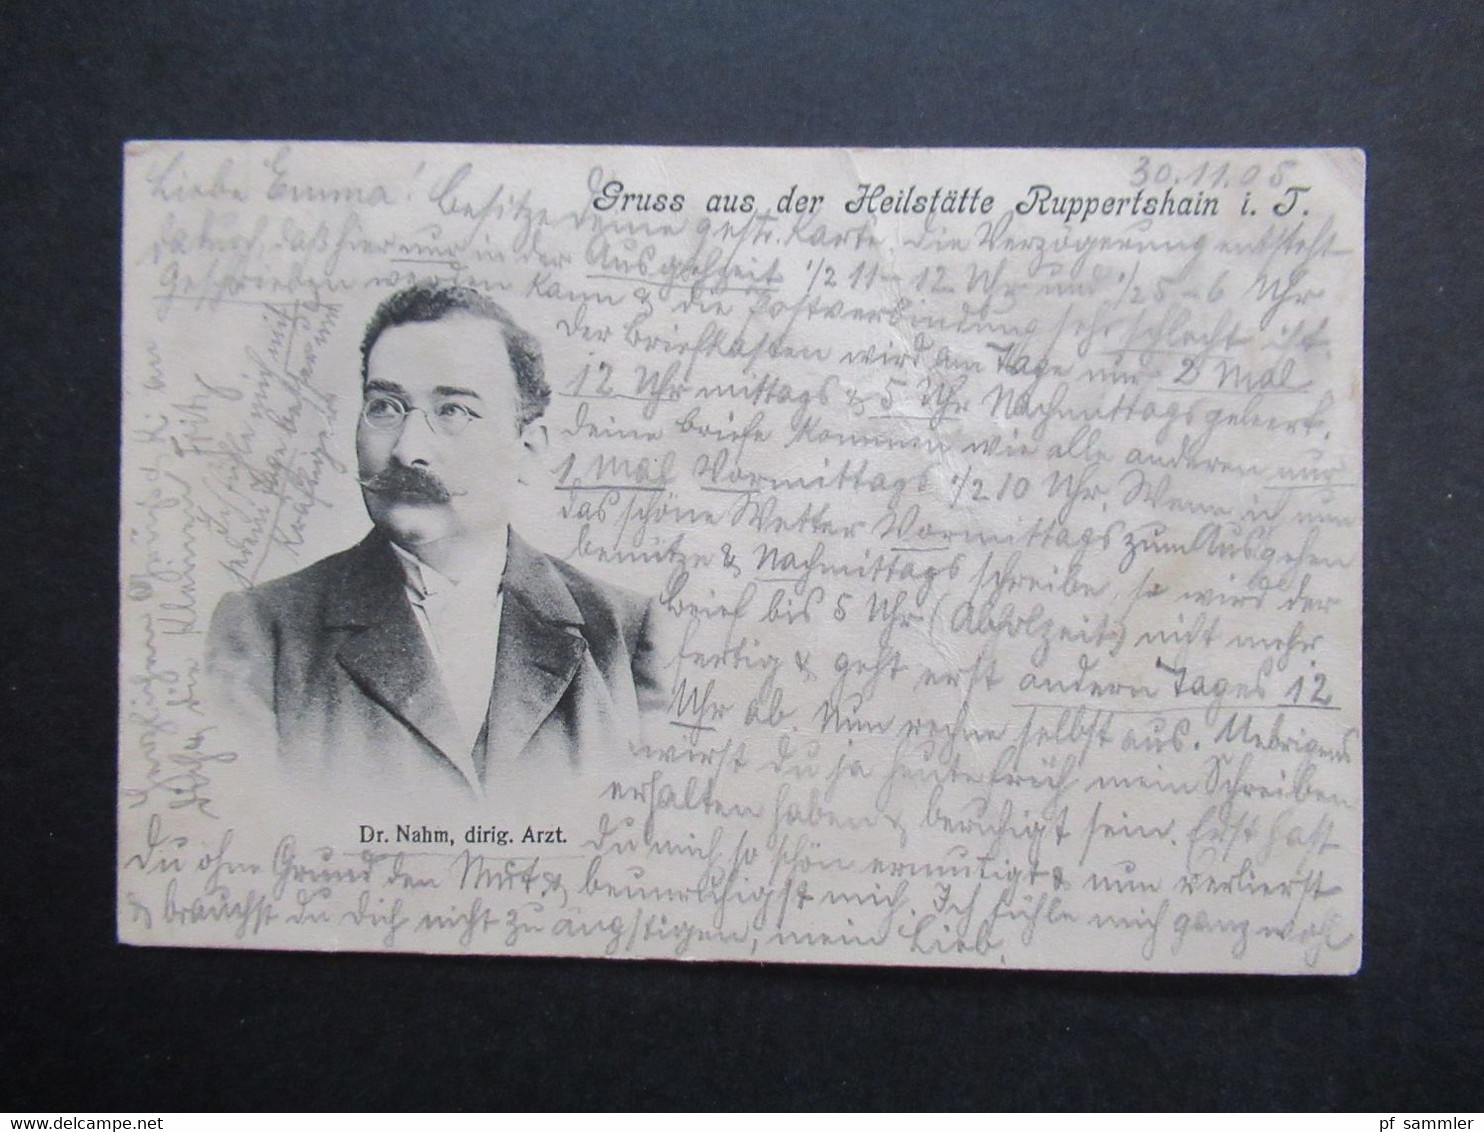 30.11.05
Gruss aus der Heilstätte Ruppertshain i. T.
Liebe Emma! Besitze deine gestr. Karte, die Verzögerung entsteht
dadurch, daß hier nur in der Ausgehzeit 1/2 11-12 Uhr und 1/2 5-6 Uhr
geschrieben werden kann & die Postverbindung sehr schlecht ist.
Der Briefkasten wird am Tage nur 2 Mal
12 Uhr mittags & 5 Uhr Nachmittags geleert.
Deine Briefe kommen wie alle anderen nur
1 Mal Vormittags 1/2 10 Uhr. Wenn ich nun
das schöne Wetter Vormittags zum Ausgehen
benütze & Nachmittags schreibe, so wird der
Brief bis 5 Uhr (Abholzeit) nicht mehr
fertig & geht erst andern Tages 12
Uhr ab. Nun rechne selbst aus. Uebrigens
wirst du ja heute früh mein Schreiben
erhalten haben & beruhigt sein. Erst hast
du mich so schön ermutigt & nun verlierst
Du ohne Grund den Mut & beunruhigst mich. Ich fühle mich ganz wohl
& brauchst du dich nicht zu ängstigen, mein Lieb.
Ich fühle mich mit
jedem Tage besser und
kräftiger
Herzlichen
die kleinen Fritz
Dr. Nahm, dirig. Arzt.
www.delcampe.net
pf_sammler